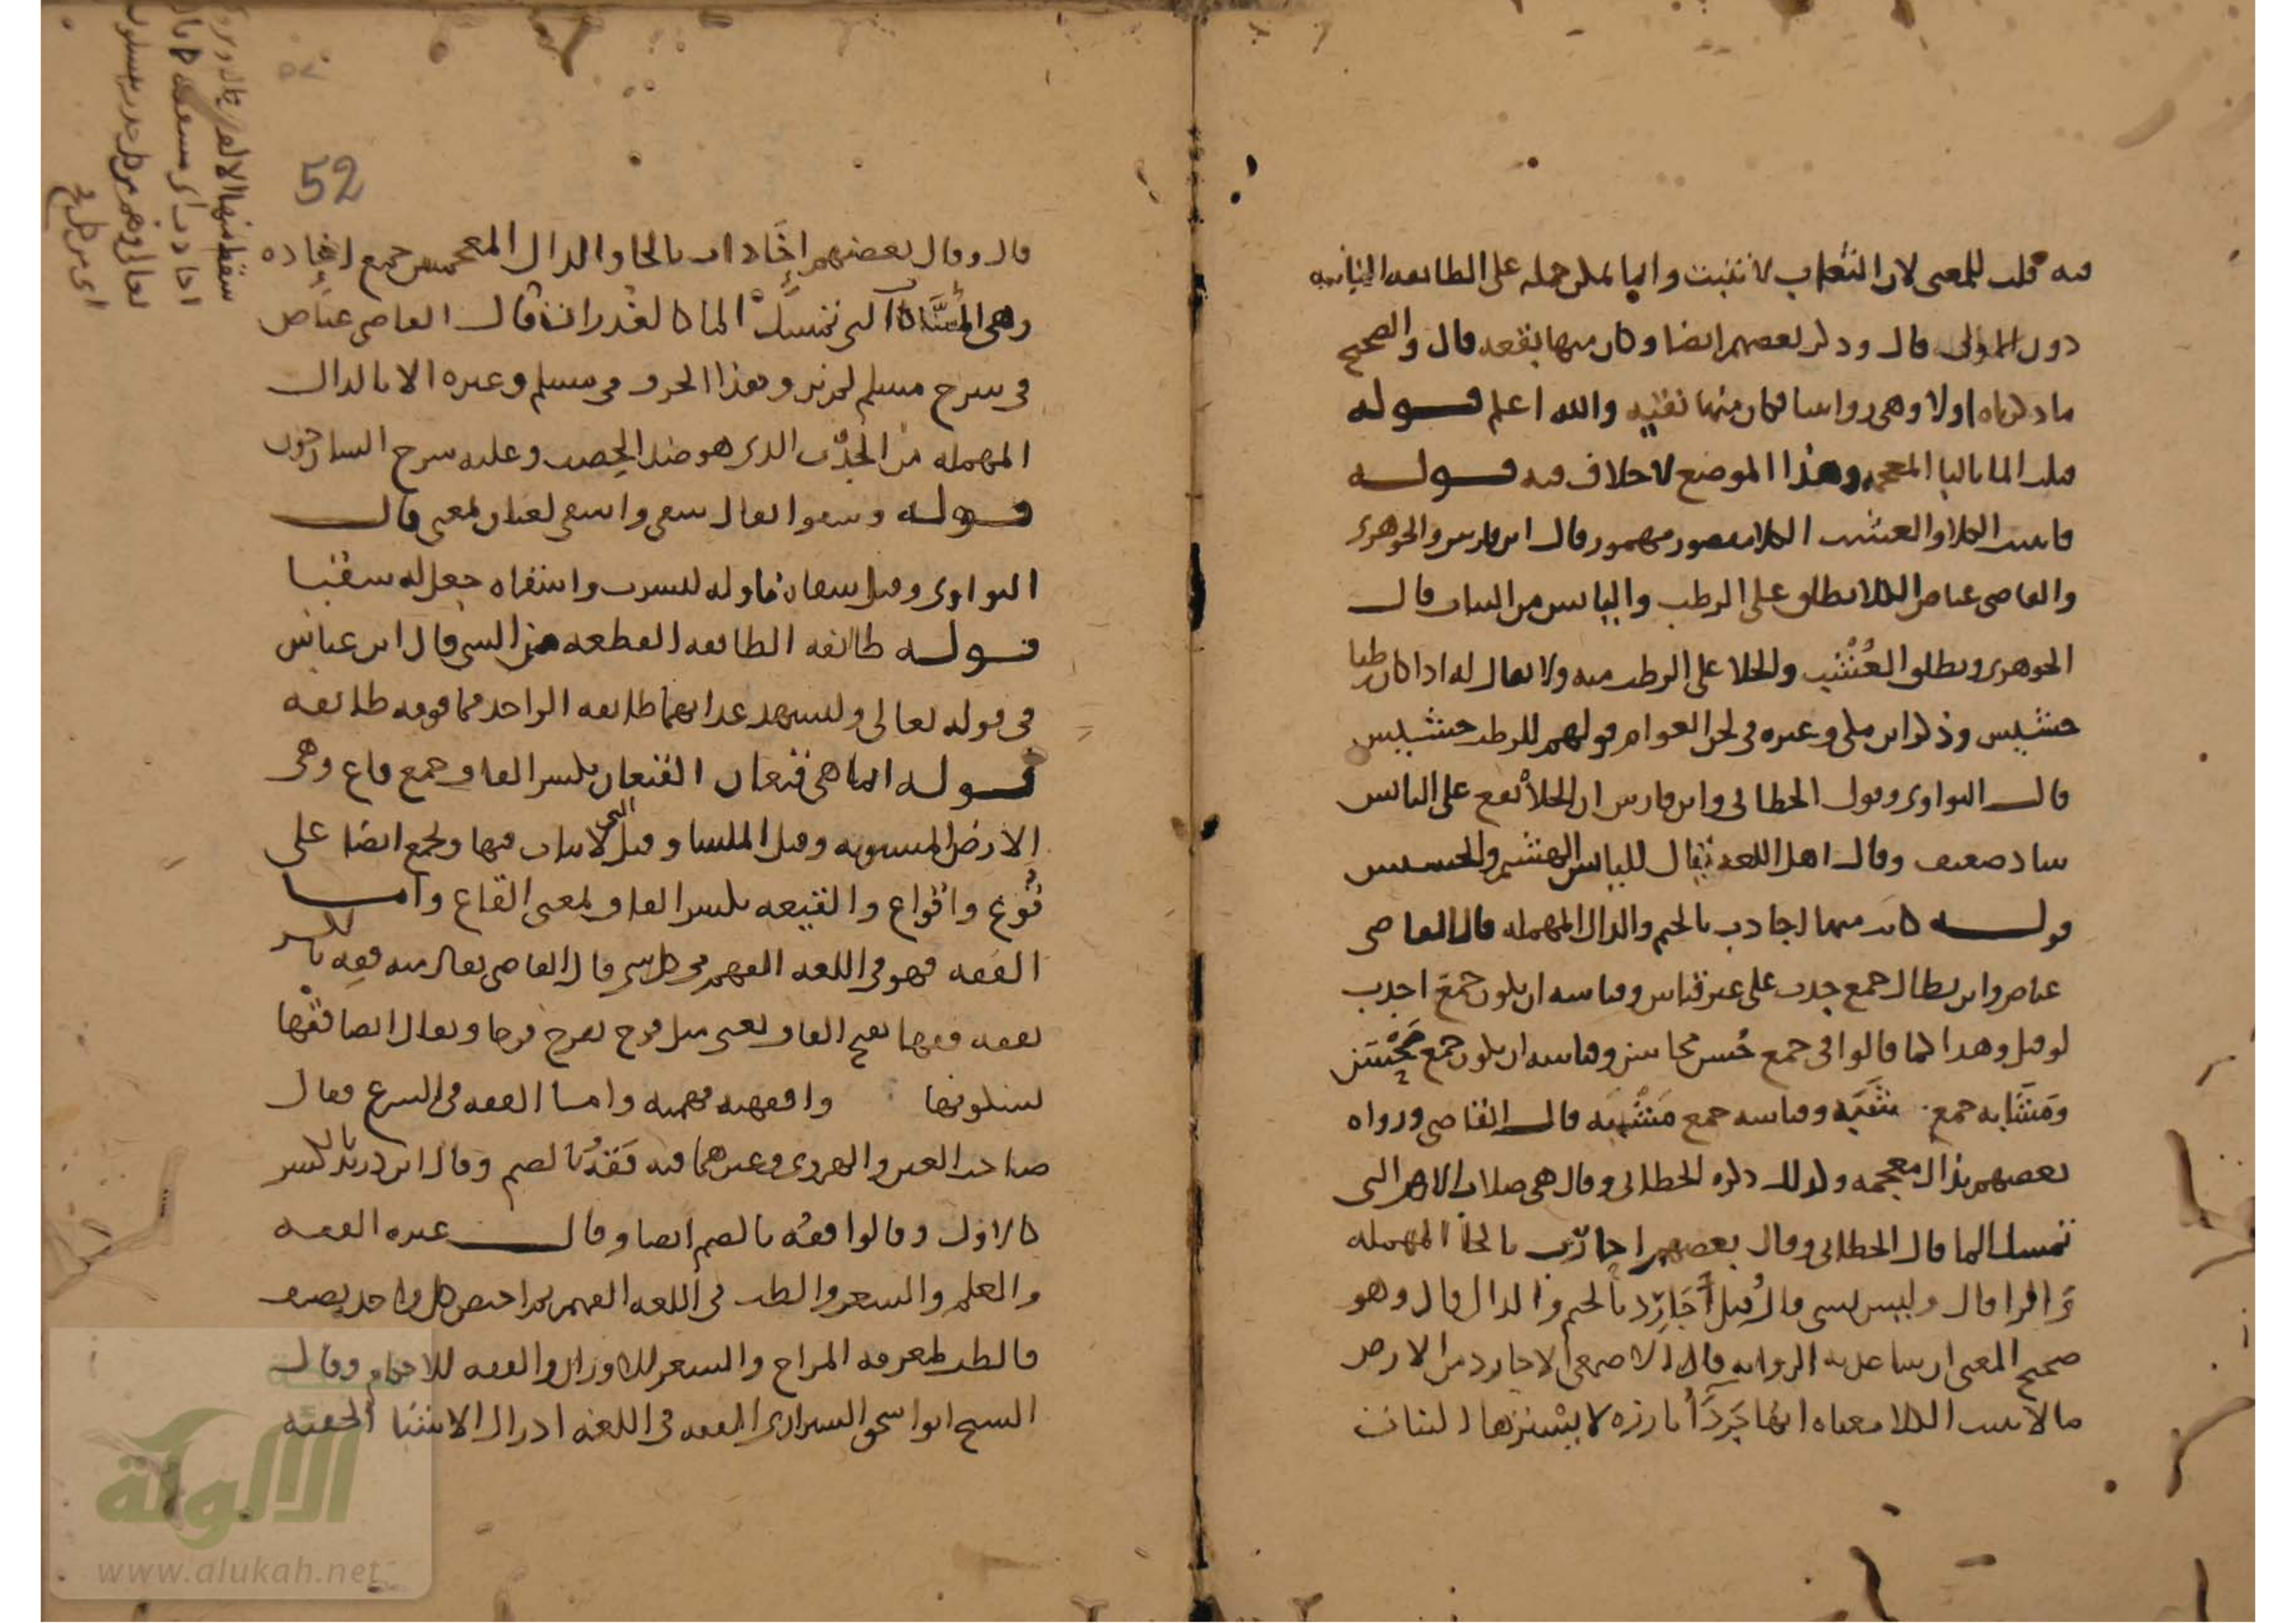 فيه قلب للمعنى لان الثعاب لا تنبت وانما يمكن حمله على الطائفة الثانية
دون الاولى قال وذكر بعضهم ايضا وكان منها بقعة قال والصحيح
ما ذكرناه اولا وهي روايتنا فكان منها نقية والله اعلم قوله
قبلت الما باليا المعجمة وهذا الموضع لا خلاف فيه قوله
فانبتت الكلا والعشب الكلا مقصور مهموز قال ابن فارس والجوهري
والقاضي عياض الكلا يطلق على الرطب واليابس من النبات قال
الجوهري ويطلق العشب والخلا على الرطب منه ولا يقال له اذا كان رطبا
حشيش وذكر ابن مكي وغيره في لحن العوام قولهم للرطب حشيش
قال النواوي وقول الخطابي وابن فارس ان الخلا يقع على اليابس
شاذ ضعيف وقال اهل اللغة يقال لليابس الهشيم والحشيش
قوله كانت منها اجادب بالجيم والدال المهملة قال القاضي
عياض وابن بطال جمع جدب على غير قياس وقياسه ان يكون جمع اجدب
لو قيل وهذا كما قالوا في جمع حسن محاسن وقياسه ان يكون جمع محسن
ومشابه جمع شبه وقياسه جمع مشبه قال القاضي ورواه
بعضهم بذال معجمة وكذلك ذكره الخطابي وقال هي صلاب الارض التي
تمسك الما قال الخطابي وقال بعضهم احارب بالحا المهملة
والرا قال وليس بشي قال وقيل اجارد بالجيم والدال قال وهو
صحيح المعنى ان ساعدته الرواية قال الاصمعي الاجارد من الارض
ما لا ينبت الكلا معناه انها جردا بارزة لا يسترها النبات
52
قال وقال بعضهم اخاذات بالخا والذال المعجمتين جمع اخاذة
وهي المساكات التي تمسك الما كالغدران قال القاضي عياض
في شرح مسلم لم يرو هذا الحرف في مسلم وغيره الا بالدال
المهملة من الجدب الذي هو ضد الخصب وعليه شرح الشارحون
قوله وسقوا يقال سقى واسقى لغتان بمعنى قال
النواوي وقيل سقاه ناوله ليشرب واسقاه جعل له سقيا
قوله طائفة الطائفة القطعة من الشي قال ابن عباس
في قوله تعالى وليشهد عذابهما طائفة الواحد فما فوقه طائفة
قوله انما هي قيعان القيعان بكسر القاف جمع قاع وهي
الارض المستوية وقيل الملسا وقيل التي لا نبات فيها ويجمع ايضا على
قوع واقواع والقيعة بكسر القاف بمعنى القاع واما
الفقه فهو في اللغة الفهم في كل شي قال القاضي يقال منه فقه بالكسر
يفقه فقها بفتح القاف يعني مثل فرح يفرح فرحا ويقال ايضا فقها
بسكونها وافقهته فهمته واما الفقه في الشرع فقال
صاحب العين والهروي وغيرهما فيه فقه بالضم وقال ابن دريد بالكسر
كالاول وقالوا فقه بالضم ايضا وقال غيره الفقه
والعلم والشعر والطب في اللغة الفهم ثم اختص كل واحد بصرف
فالطب لمعرفة المزاج والشعر للاوزان والفقه للاحكام وقال
الشيخ ابو اسحق الشيرازي الفقه في اللغة ادراك الاشيا الخفية
الألوكة
www.alukah.net